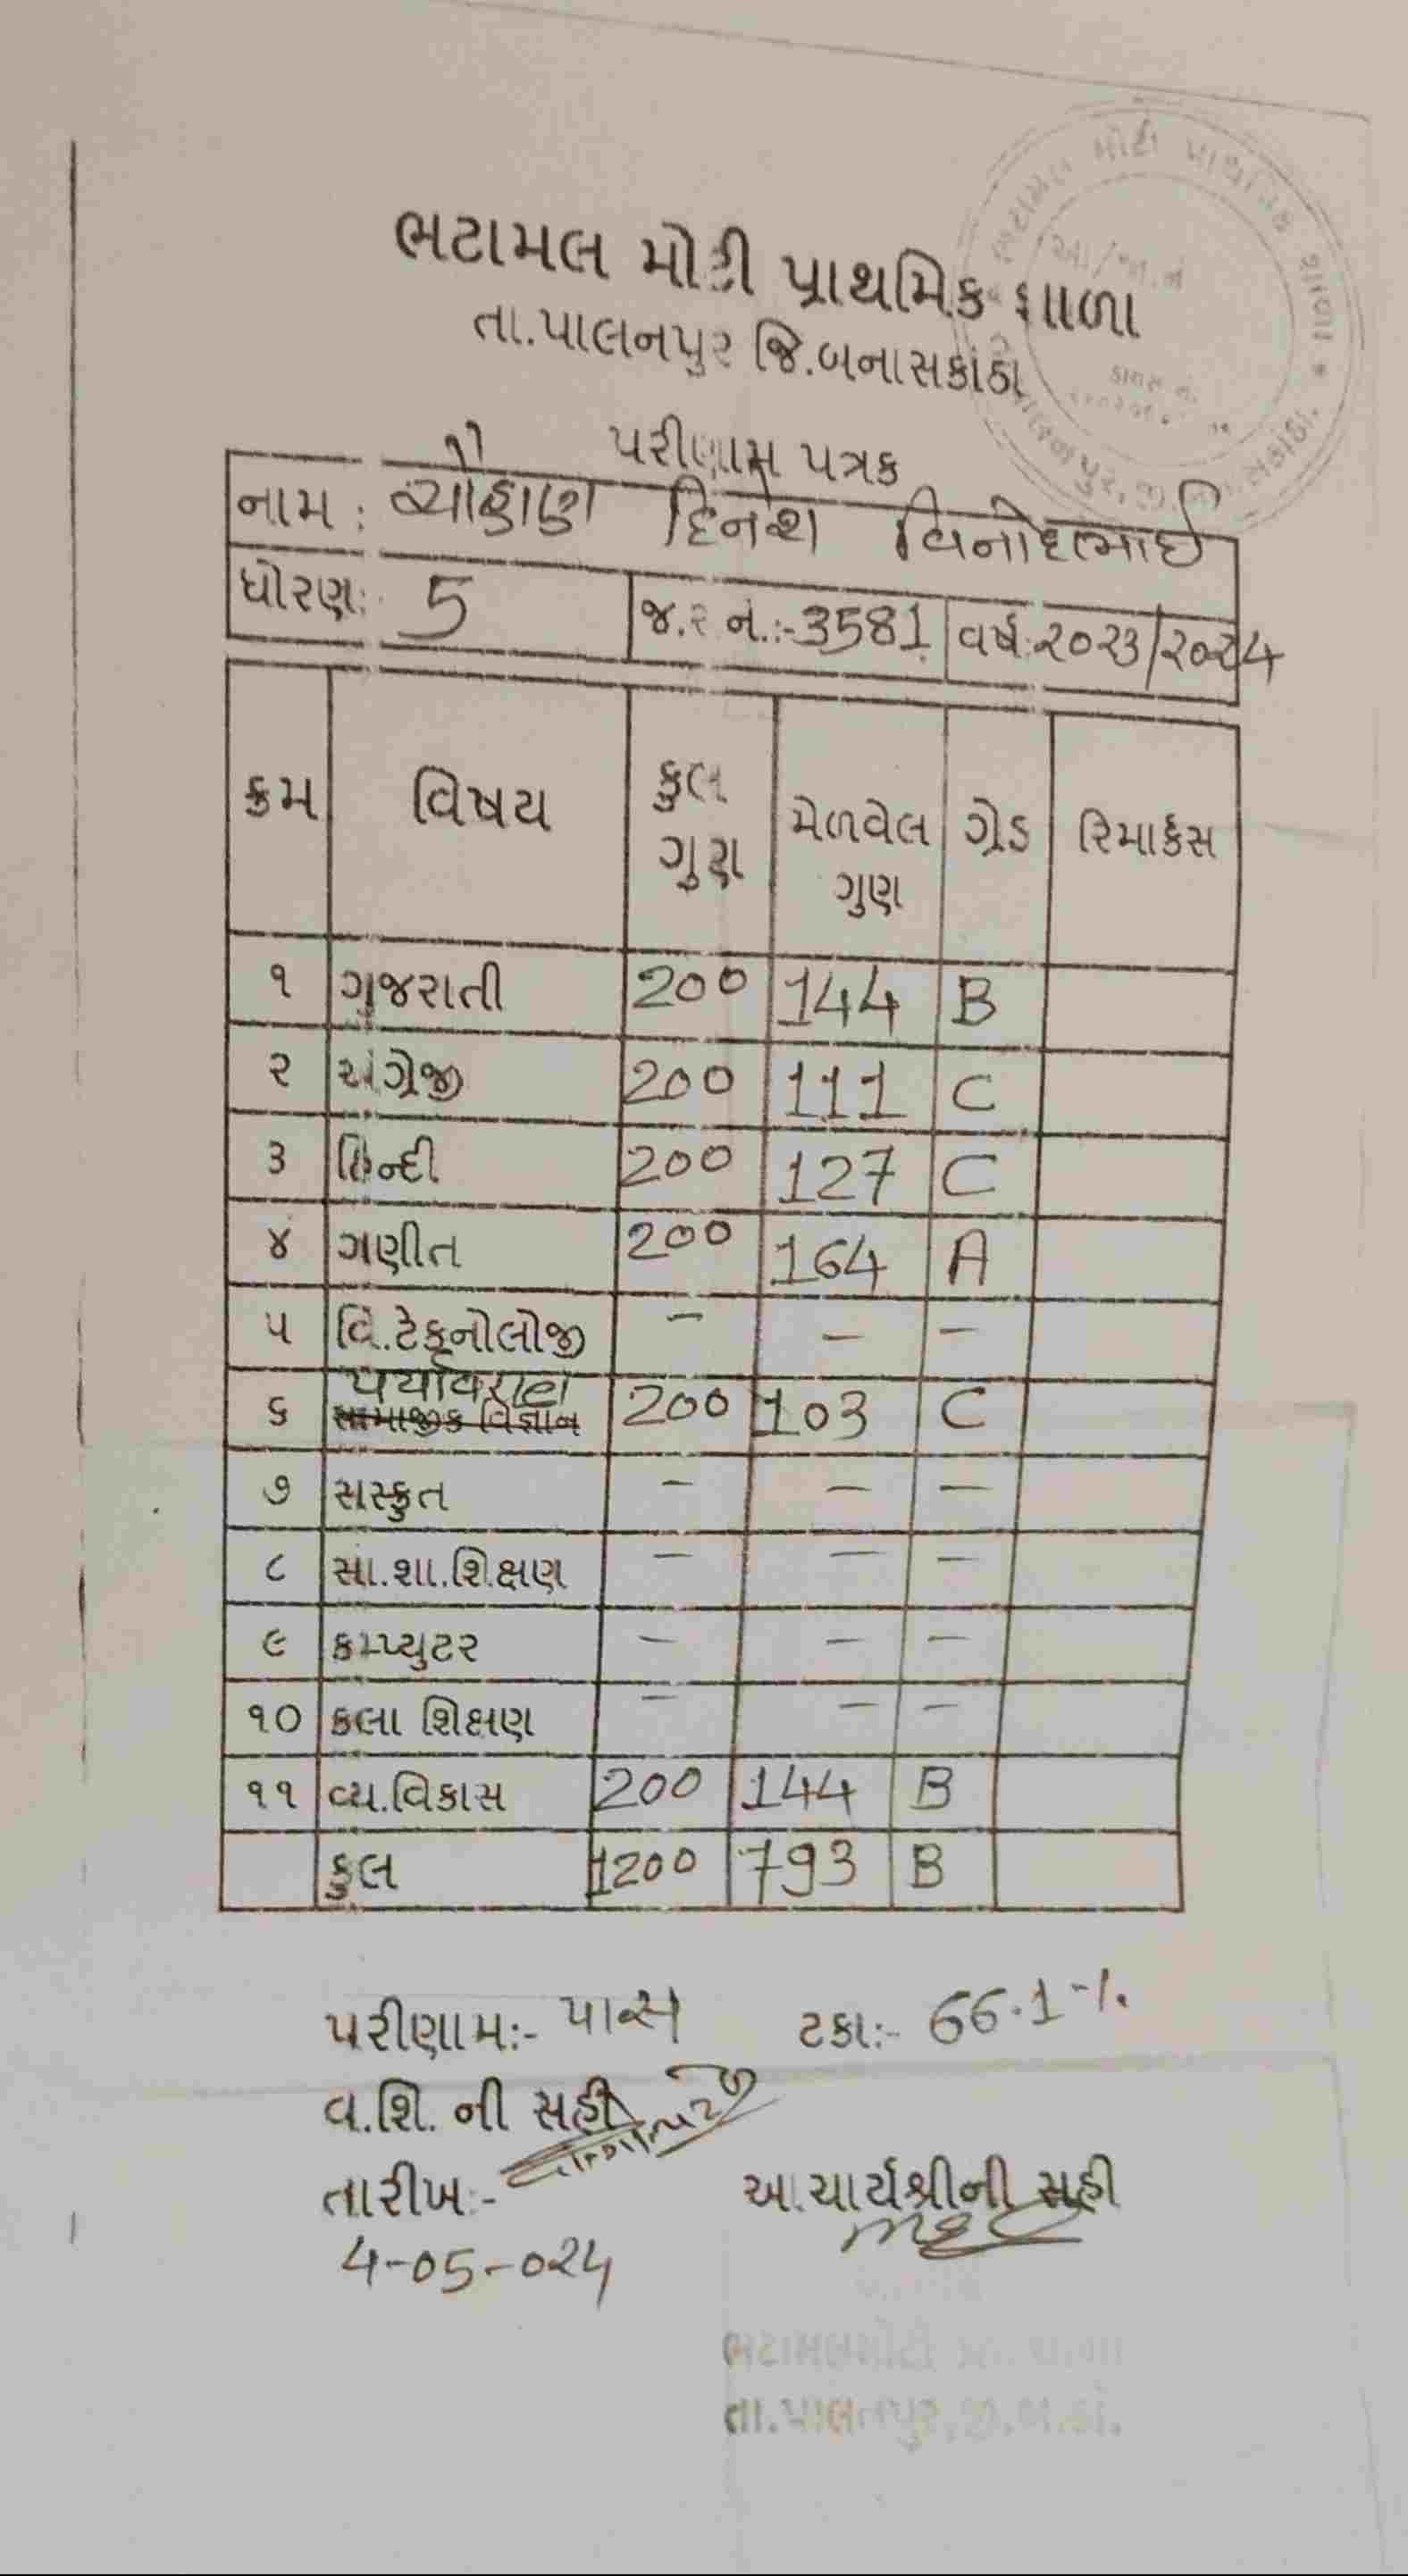 ભટામલ મોટી પ્રાથમિક શાળા
તા.પાલનપુર જિ.બનાસકાંઠા
પરીણામ પત્રક
નામ: ચૌહાણ દિનેશ વિનોદભાઈ
ધોરણ: 5 જ.ર નં.:-3581 વર્ષ:૨૦૨૩/૨૦૨4
ક્રમ વિષય કુલ ગુણ મેળવેલ ગુણ ગ્રેડ રિમાર્કસ
૧ ગુજરાતી 200 144 B
૨ અંગ્રેજી 200 111 C
૩ હિન્દી 200 127 C
૪ ગણીત 200 164 A
૫ વિ.ટેકનોલોજી - - -
પર્યાવરણ
૬ સામાજીક વિજ્ઞાન 200 103 C
૭ સસ્કુત - - -
૮ સા.શા.શિક્ષણ - - -
૯ કમ્પ્યુટર - - -
૧૦ કલા શિક્ષણ - - -
૧૧ વ્ય.વિકાસ 200 144 B
કુલ 1200 793 B
પરીણામ:- પાસ ટકા:- 66.1-%
વ.શિ. ની સહી
તારીખ:- આચાર્યશ્રીની સહી
4-05-024
તા.પાલનપુર,જી.બ.કાં.